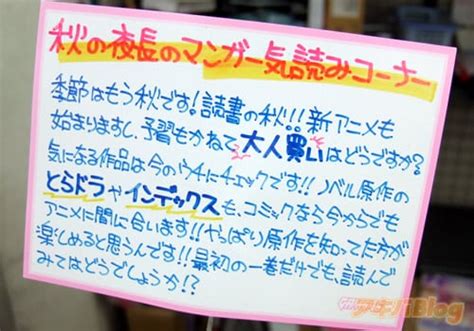 秋の夜長のマンガ一気読みコーナー
季節はもう秋です!読書の秋!!新アニメも
始まりますし、予習もかねて大人買いはどうですか?
気になる作品は今のウチにチェックです!!ノベル原作の
とらドラやインデックスも、コミックなら今からでも
アニメに間に合います!!やっぱり原作を知ってた方が
楽しめると思うんです!!最初の一巻だけでも、読んで
みてはどうでしょうか!?
アキバBlog